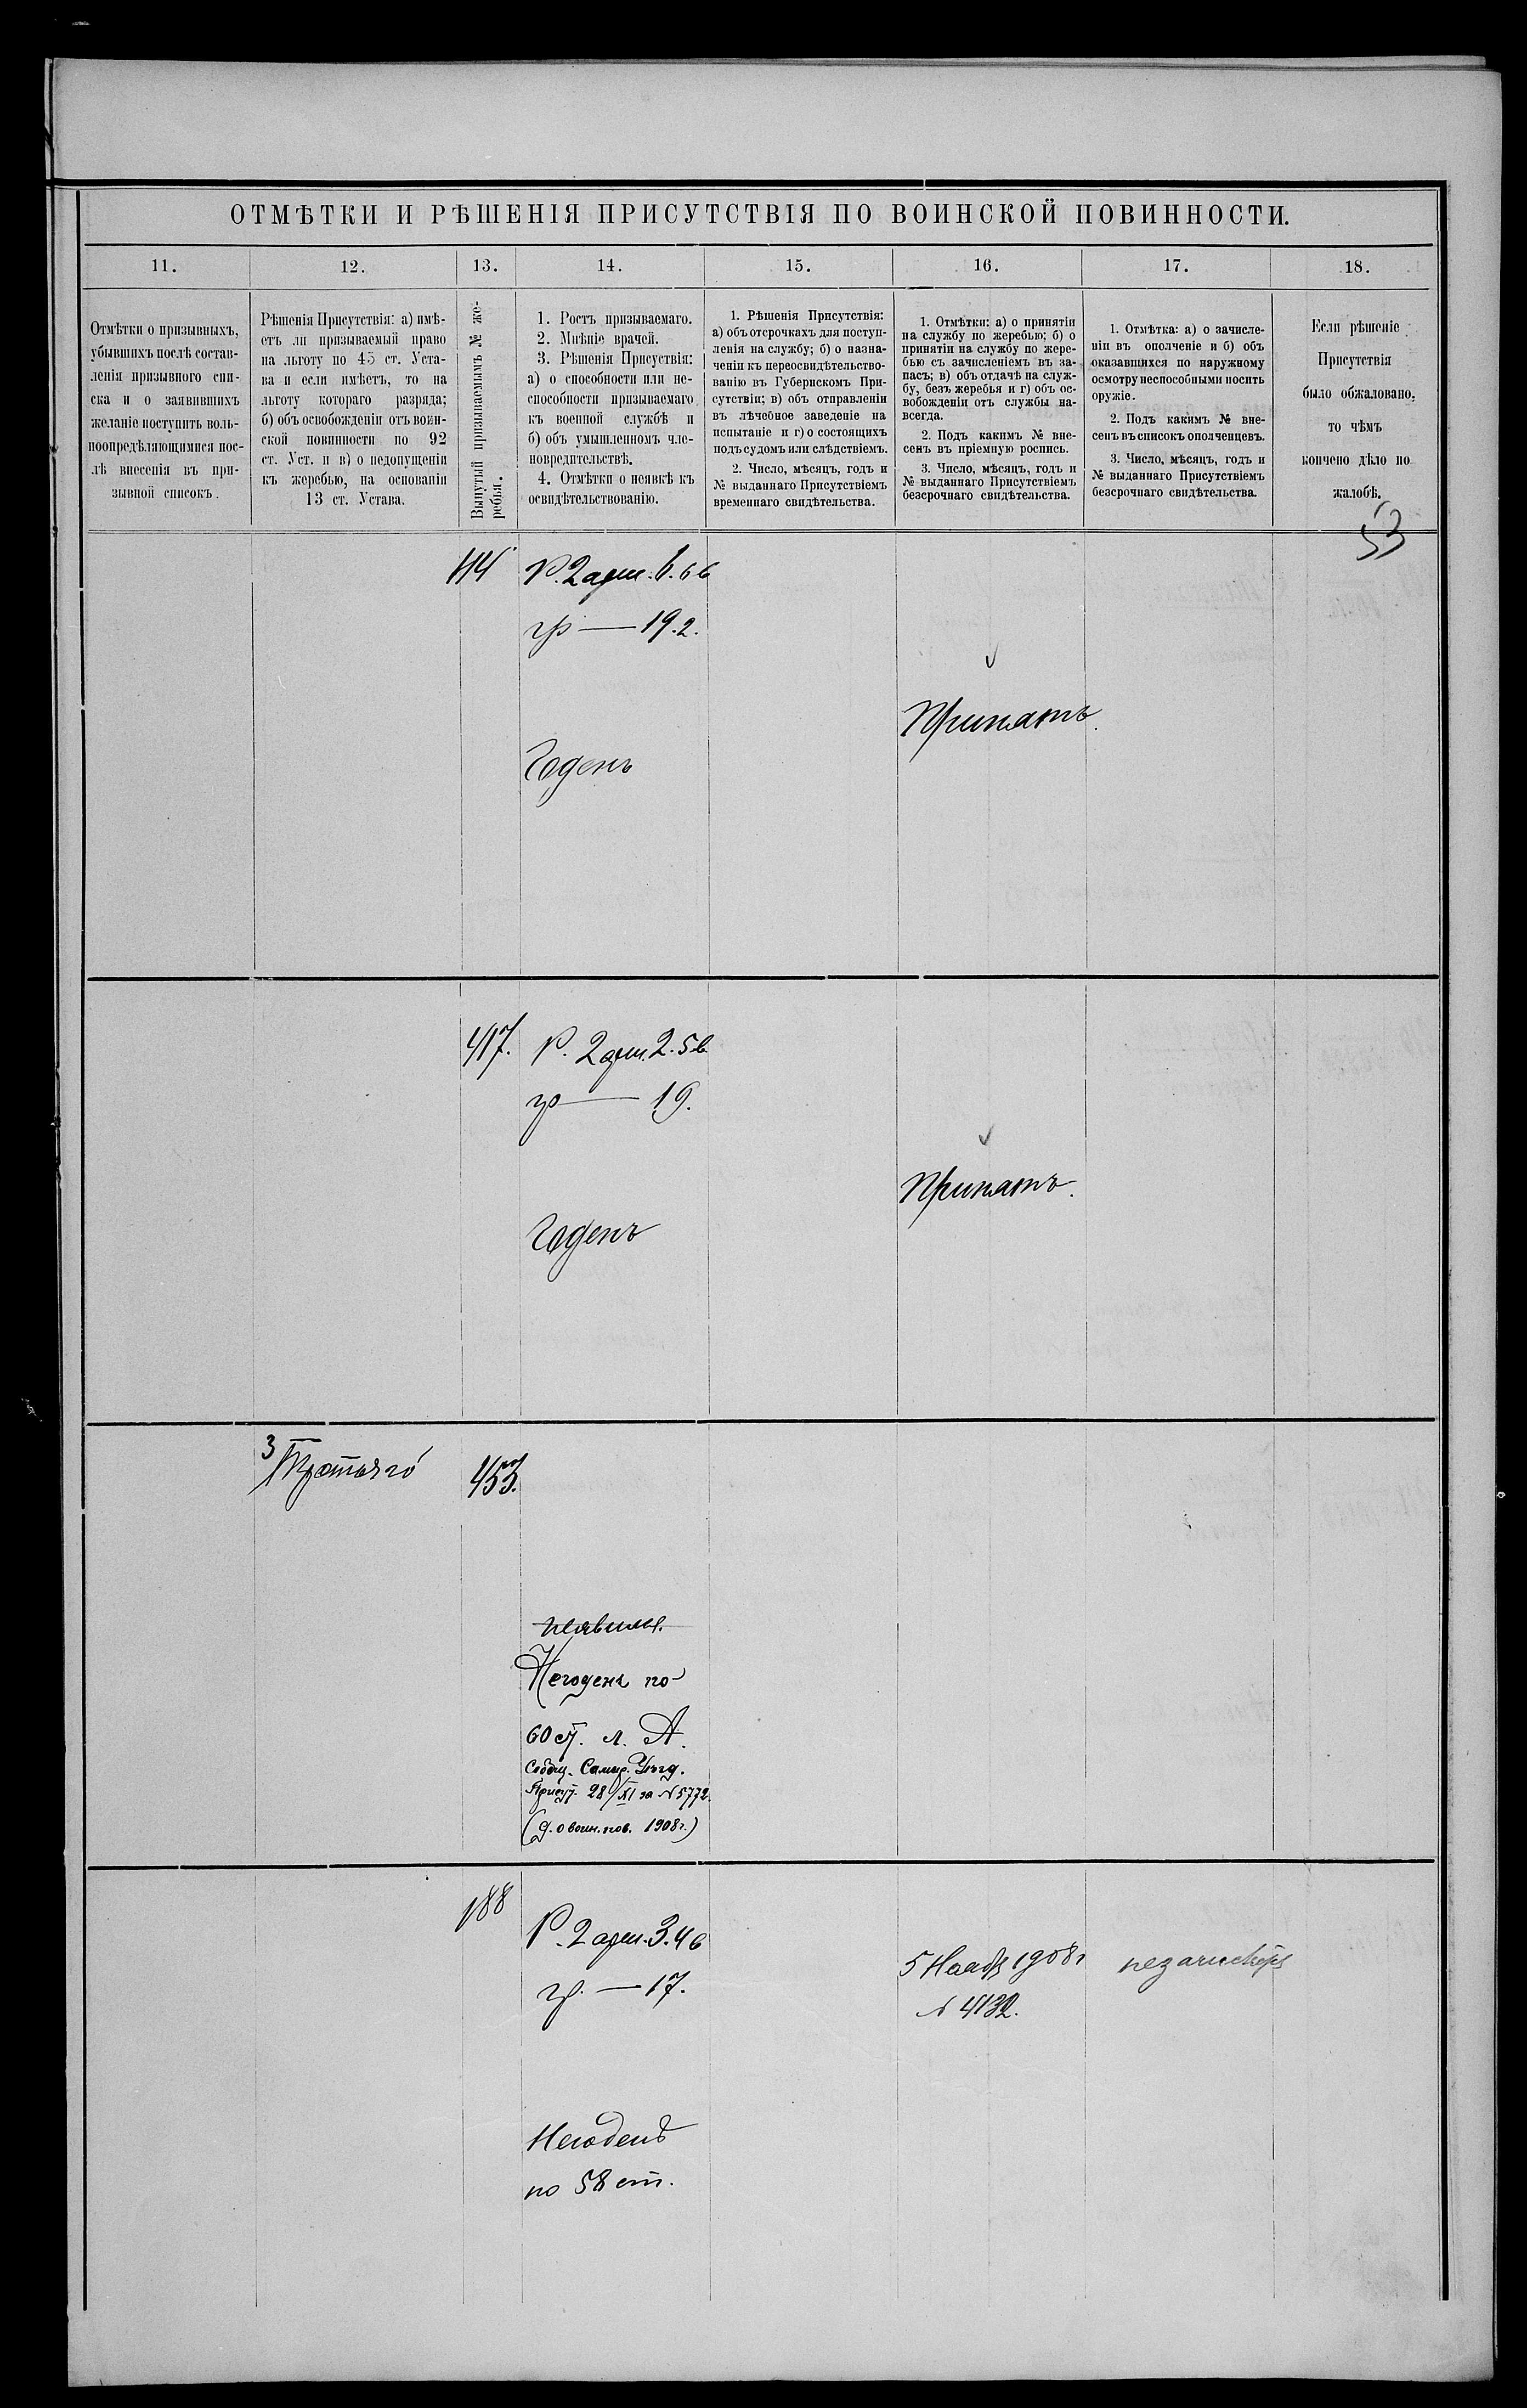 ОТМѢТКИ И РѢШЕНІЯ ПРИСУТСТВІЯ ПО ВОИНСКОЙ ПОВИННОСТИ.
11.
12.
13.
14.
15.
16.
17.
18.
Отмѣтки о призывныхъ,
убывшихъ послѣ состав-
ленія призывного спи-
ска и о заявившихъ
желаніе поступить воль-
ноопредѣляющимися пос-
лѣ внесенія въ при-
зывной списокъ.
Рѣшенія Присутствія: а) имѣ-
етъ ли призываемый право
на льготу по 45 ст. Уста-
ва и если имѣетъ, то на
льготу котораго разряда;
б) объ освобожденіи отъ воин-
ской повинности по 92
ст. Уст. и в) о недопущеніи
къ жеребью, на основаніи
13 ст. Устава.
Вынутый призываемымъ № же-
ребья.
1. Ростъ призываемаго.
2. Мнѣніе врачей.
3. Рѣшенія Присутствія:
а) о способности или не-
способности призываемаго
къ военной службѣ и
б) объ умышленномъ чле-
новредительствѣ.
4. Отмѣтки о неявкѣ къ
освидѣтельствованію.
1. Рѣшенія Присутствія:
а) объ отсрочкахъ для поступ-
ленія на службу; б) о назна-
ченіи къ переосвидѣтельство-
ванію въ Губернскомъ При-
сутствіи; в) объ отправленіи
въ лѣчебное заведеніе на
испытаніе и г) о состоящихъ
подъ судомъ или слѣдствіемъ.
2. Число, мѣсяцъ, годъ и
№ выданнаго Присутствіемъ
временнаго свидѣтельства.
1. Отмѣтки: а) о принятіи
на службу по жеребью; б) о
принятіи на службу по жере-
бью съ зачисленіемъ въ за-
пасъ; в) объ отдачѣ на служ-
бу, безъ жеребья и г) объ ос-
вобожденіи отъ службы на-
всегда.
2. Подъ какимъ № вне-
сенъ въ пріемную роспись.
3. Число, мѣсяцъ, годъ и
№ выданнаго Присутствіемъ
безсрочнаго свидѣтельства.
1. Отмѣтка: а) о зачисле-
ніи въ ополченіе и б) объ
оказавшихся по наружному
осмотру неспособными носить
оружіе.
2. Подъ какимъ № вне-
сенъ въ списокъ ополченцевъ.
3. Число, мѣсяцъ, годъ и
№ выданнаго Присутствіемъ
безсрочнаго свидѣтельства.
Если рѣшеніе
Присутствія
было обжаловано,
то чѣмъ
кончено дѣло по
жалобѣ.
53
114
Р. 2 арш. 6.6в
гр — 19.2.
Годенъ
Принятъ.
417.
Р. 2 арш. 2.5в
гр — 19.
Годенъ
Принятъ.
3
Третьяго
453.
неявился.
Негоденъ по
60 ст. л. А.
Сообщ. Самар. Уѣзд.
Присут. 28/XI за № 5772.
(д. о воин. пов. 1908 г.)
188
Р. 2 арш. 3.4в
гр. — 17.
Негоденъ
по 58 ст.
5 Нояб 1908 г
№ 4132.